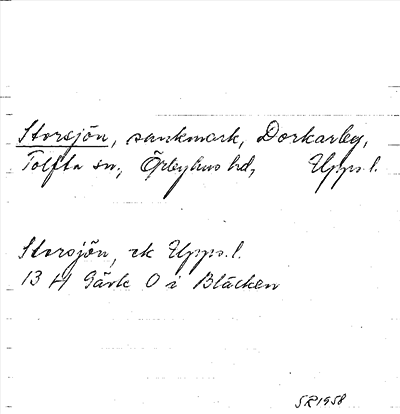 Storsjön, sankmark, Dorkarby,
Tolfta sn, Örbyhus hd, Upps.l.
Storsjön, ek Upps.l.
13 H Gävle O i Bläcken
SR1958